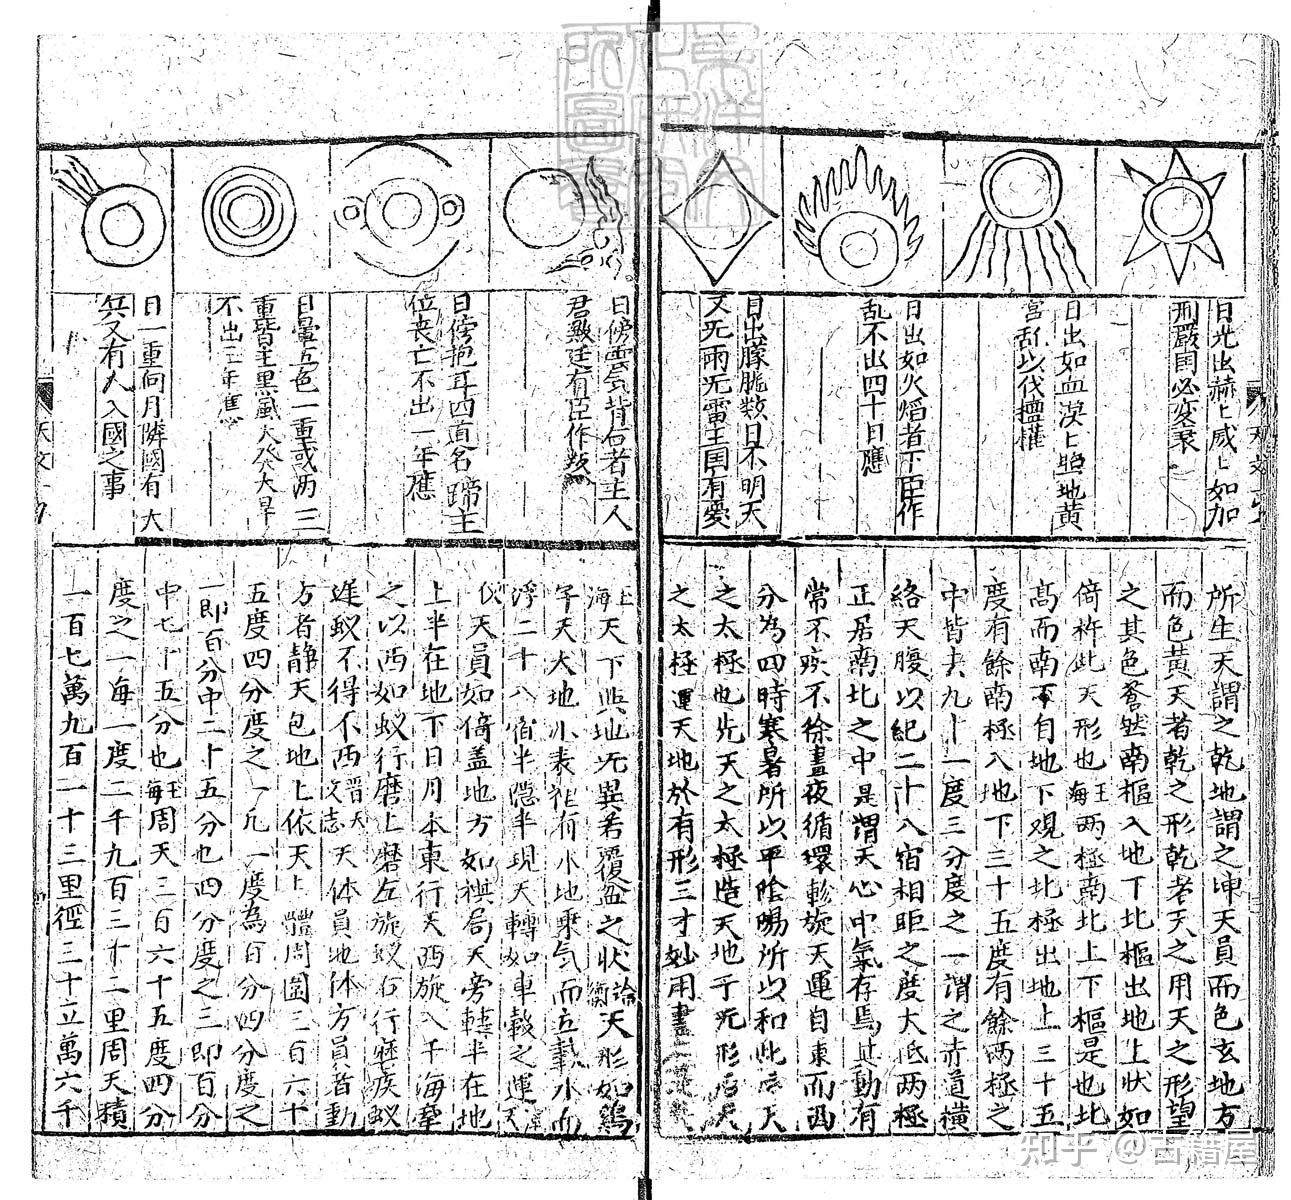 日光出赫〻威〻如加
刑嚴国必変衆
日出如血漠上照地黄
宮乱以伐擅權
日出如火焰者下臣作
乱不出四十日應
日出朦朧数日不明天
又旡雨旡雷王国有憂
所生天謂之乾地謂之坤天員而色玄地方
而色黄天者乾之形乾者天之用天之形望
之其色蒼然南樞入地下北樞出地上狀如
倚杵此天形也王海两極南北上下樞是也北
髙而南下自地下观之北極出地上三十五
度有餘南極入地下三十五度有餘两極之
中皆去九十一度三分度之一謂之赤道橫
絡天腹以紀二十八宿相距之度大低两極
正居南北之中是謂天心中氣存焉其動有
常不疾不徐晝夜循環軫旋天運自東而西
分為四時寒暑所以平陰陽所以和此后天
之太極也先天之太極造天地于旡形后天
之太極運天地於有形三才妙用盡
日傍雲气背后者主人
君歎廷有臣作叛
日傍抱耳四道名蹄主
位丧亡不出一年應
日暈五色一重或两三
重皆主黒風大發大旱
不出三年應
日一重向月隣國有大
兵又有人入國之事
王海天下與地旡異若覆盆之状論衡天形如鷄
字天大地小表裡有水地乘气而立載水而
浮二十八宿半隱半現天轉如車轂之運天
仪天員如倚盖地方如棋局天旁轉半在地
上半在地下日月本東行天西旋入于海牽
之以西如蚁行磨上磨左旋蚁右行磨疾蚁
遅蚁不得不西晋天文志天体員地体方員者動
方者静天包地上依天上體周圍三百六十
五度四分度之一凢一度為百分四分度之
一即百分中二十五分也四分度之三即百分
中七十五分也王海周天三百六十五度四分
度之一每一度二千九百三十二里周天積
一百七萬九百一十三里徑三十立萬六千
天文